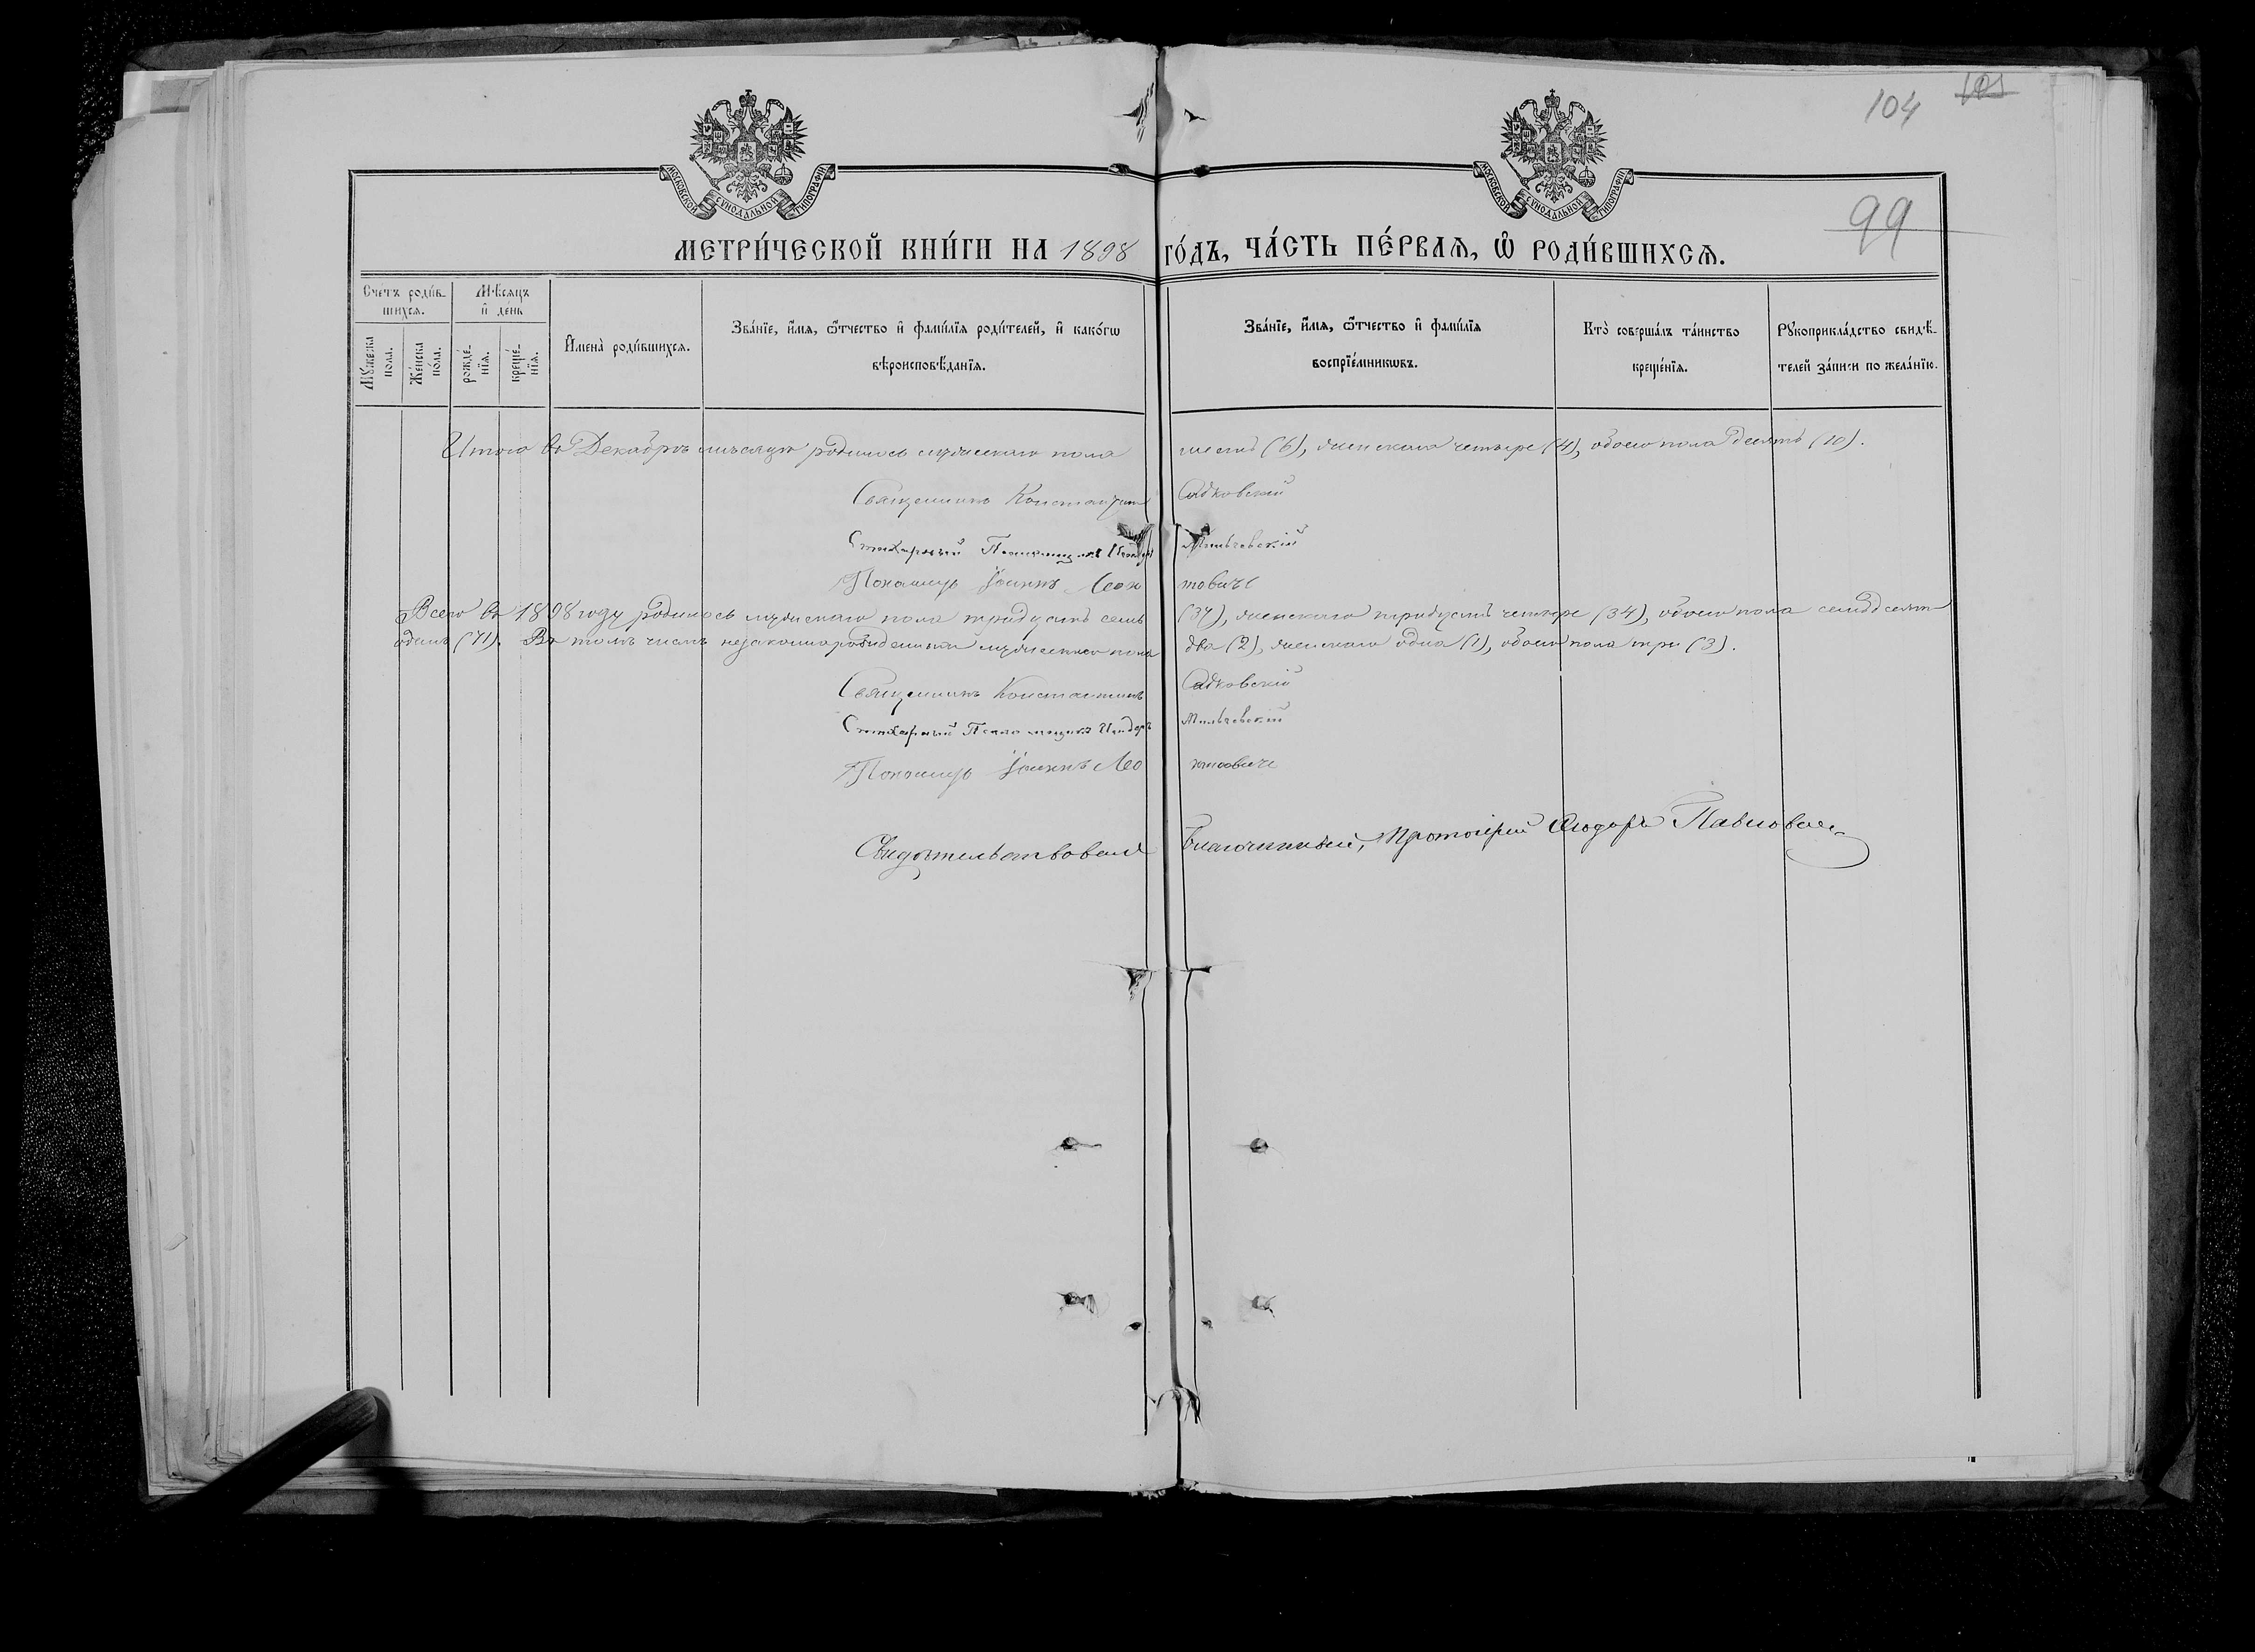 104 101
99
МОСКОВСКОЙ СѴНОДАЛЬНОЙ ТИПОГРАФІИ МОСКОВСКОЙ СѴНОДАЛЬНОЙ ТИПОГРАФІИ
МЕТРИ́ЧЕСКОЙ КНИ́ГИ НА 1898 ГО́ДЪ, ЧА́СТЬ ПЕ́РВАѦ, Ѡ҆ РОДИ́ВШИХСѦ.
Сче́тъ роди́в-
шихсѧ.
Мѣ́сѧцъ
и҆ де́нь
Мꙋ́жеска
пола.
Же́нска
по́ла.
рожде́-
нїѧ.
креще́-
нїѧ.
И҆мена̀ роди́вшихсѧ.
Зва́нїе, и҆́мѧ, ѻ҆́тчество и҆ фами́лїѧ роди́телей, и҆ како́гѡ
вѣроисповѣ́данїѧ.
Зва́нїе, и҆́мѧ, ѻ҆́тчество и҆ фами́лїѧ
воспрїе́мникѡвъ.
Кто̀ соверша́лъ та́инство
креще́нїѧ.
Рꙋкоприкла́дство свидѣ́-
телей за́писи по жела́нїю.
Итого въ Декабрѣ мѣсяцѣ родилось мужескаго пола шесть (6), женскаго четыре (4), обоего пола десять (10).
Священникъ Константинъ Садковскій
Стихарный Псаломщикъ Мильчевскій
Пономарь Іоаннъ Леонтовичъ
Всего въ 1898 году родилось мужескаго пола тридцать семь (37), женскаго тридцать четыре (34), обоего пола семьдесят
одинъ (71). Въ томъ числѣ незаконнорожденныхъ мужескаго пола два (2), женскаго одна (1), обоего пола три (3).
Священникъ Константинъ Садковскій
Стихарный Псаломщикъ Исидоръ Мильчевскій
Пономарь Іоаннъ Леонтовичъ
Свидѣтельствовалъ Благочинный, Протоіерей Ѳеодоръ Павловичъ